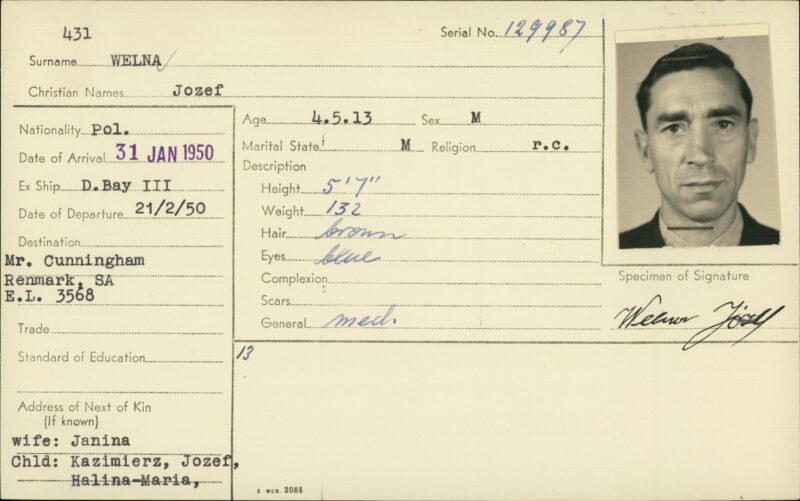 431
Serial No. 129987
Surname WELNA
Christian Names Jozef
Nationality Pol.
Date of Arrival 31 JAN 1950
Ex Ship D.Bay III
Date of Departure 21/2/50
Destination
Mr. Cunningham
Renmark, SA
E.L. 3568
Trade
Standard of Education
Address of Next of Kin
(If known)
wife: Janina
Chld: Kazimierz, Jozef,
Halina-Maria,
Age 4.5.13 Sex M
Marital State M Religion r.c.
Description
Height 5'7"
Weight 132
Hair brown
Eyes blue
Complexion
Scars
General med.
13
Specimen of Signature
Welna Józef
S MCD. 2084